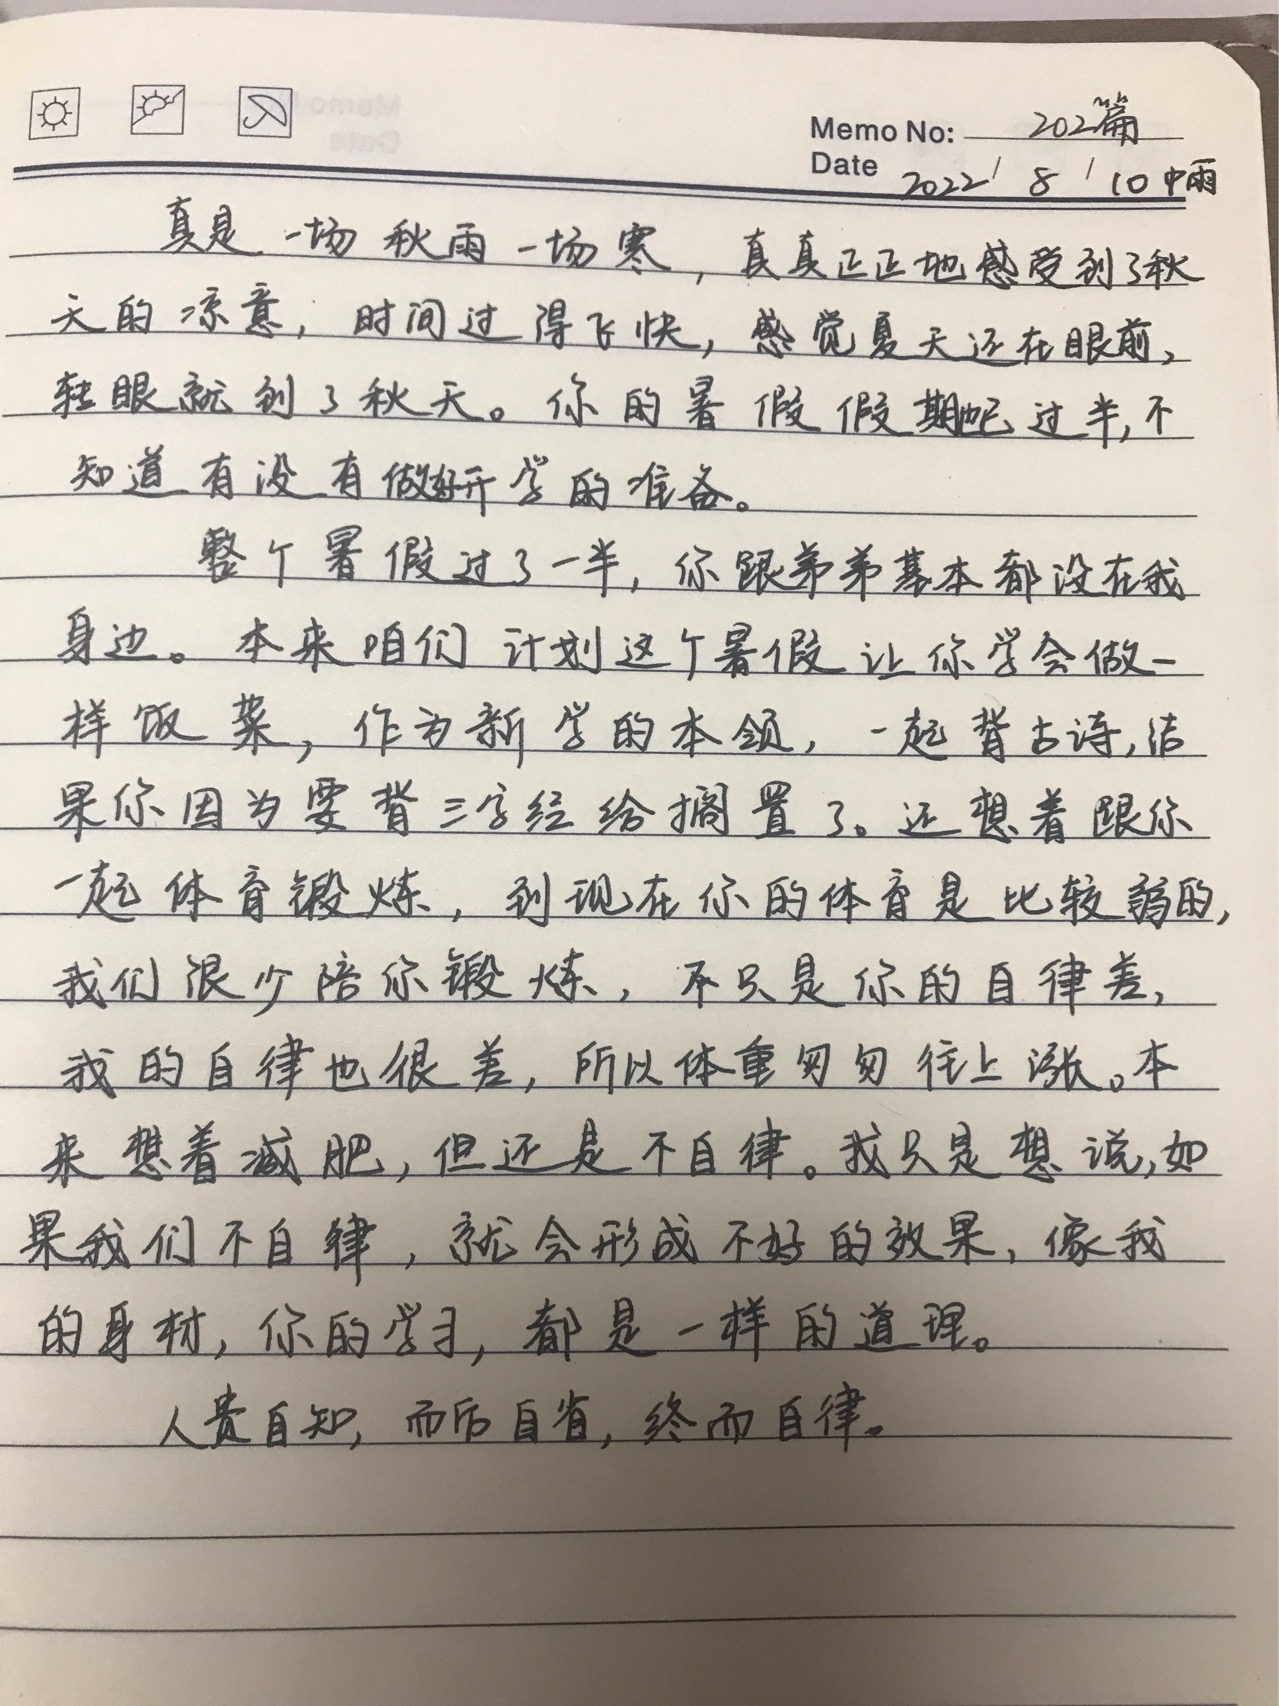 Memo No: 202篇
Date 2022 / 8 / 10 中雨
真是一场秋雨一场寒，真真正正地感受到了秋
天的凉意，时间过得飞快，感觉夏天还在眼前，
转眼就到了秋天。你的暑假假期也已过半，不
知道有没有做好开学的准备。
整个暑假过了一半，你跟弟弟基本都没在我
身边。本来咱们计划这个暑假让你学会做一
样饭菜，作为新学的本领，一起背古诗，结
果你因为要背三字经给搁置了。还想着跟你
一起体育锻炼，到现在你的体育是比较弱的，
我们很少陪你锻炼，不只是你的自律差，
我的自律也很差，所以体重匆匆往上涨。本
来想着减肥，但还是不自律。我只是想说，如
果我们不自律，就会形成不好的效果，像我
的身材，你的学习，都是一样的道理。
人贵自知，而后自省，终而自律。